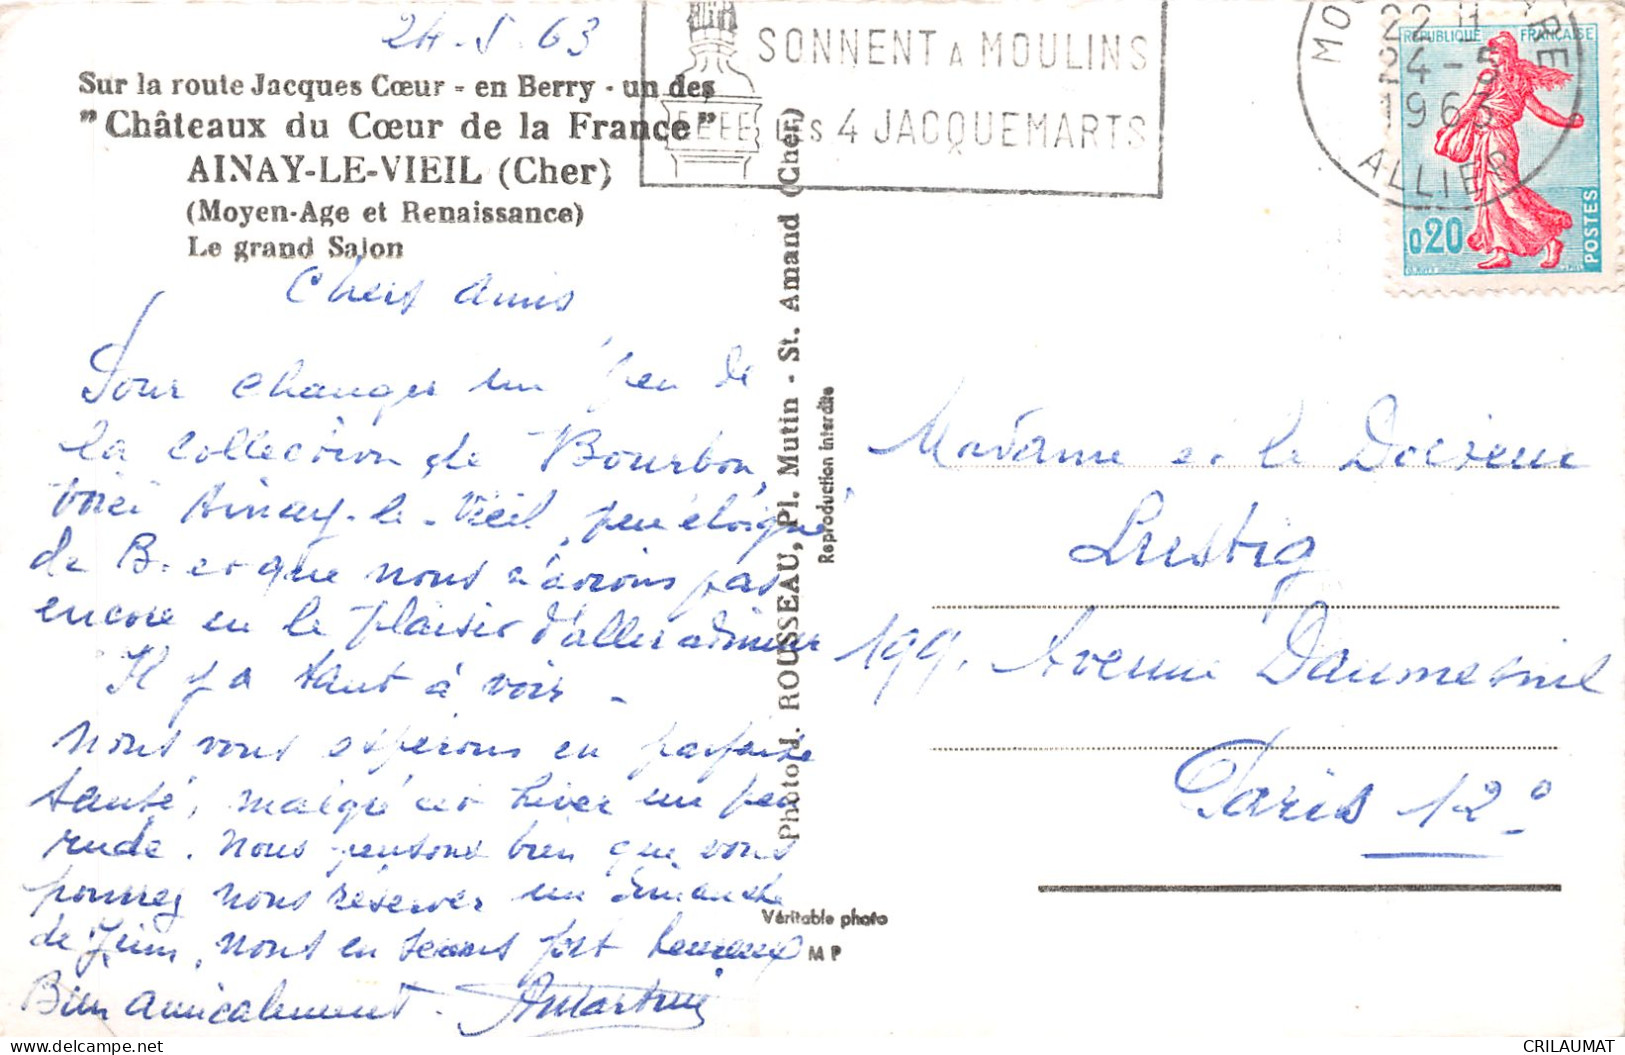 24-5-63
Sur la route Jacques Cœur - en Berry - un des
"Châteaux du Cœur de la France"
AINAY-LE-VIEIL (Cher)
(Moyen-Age et Renaissance)
Le grand Salon
Chers Amis
Pour changer un peu de
la collection de Bourbon,
voici Ainay-le-Vieil, peu éloigné
de B. et que nous n'avions pas
encore eu le plaisir d'aller admirer
Il y a tant à voir -
Nous vous espérons en parfaite
santé, malgré cet hiver un peu
rude. Nous pensons bien que vous
pourrez nous réserver un dimanche
de Juin, nous en serions fort heureux
Bien amicalement.
SONNENT A MOULINS
LES 4 JACQUEMARTS
22 H
24-5
1963
ALLIER
REPUBLIQUE FRANÇAISE
0,20
POSTES
Photo J. ROUSSEAU, Pl. Mutin - St. Amand (Cher)
Reproduction interdite
Véritable photo
MP
Madame et le Docteur
Lustig
199, Avenue Daumesnil
Paris 12°
CRILAUMAT